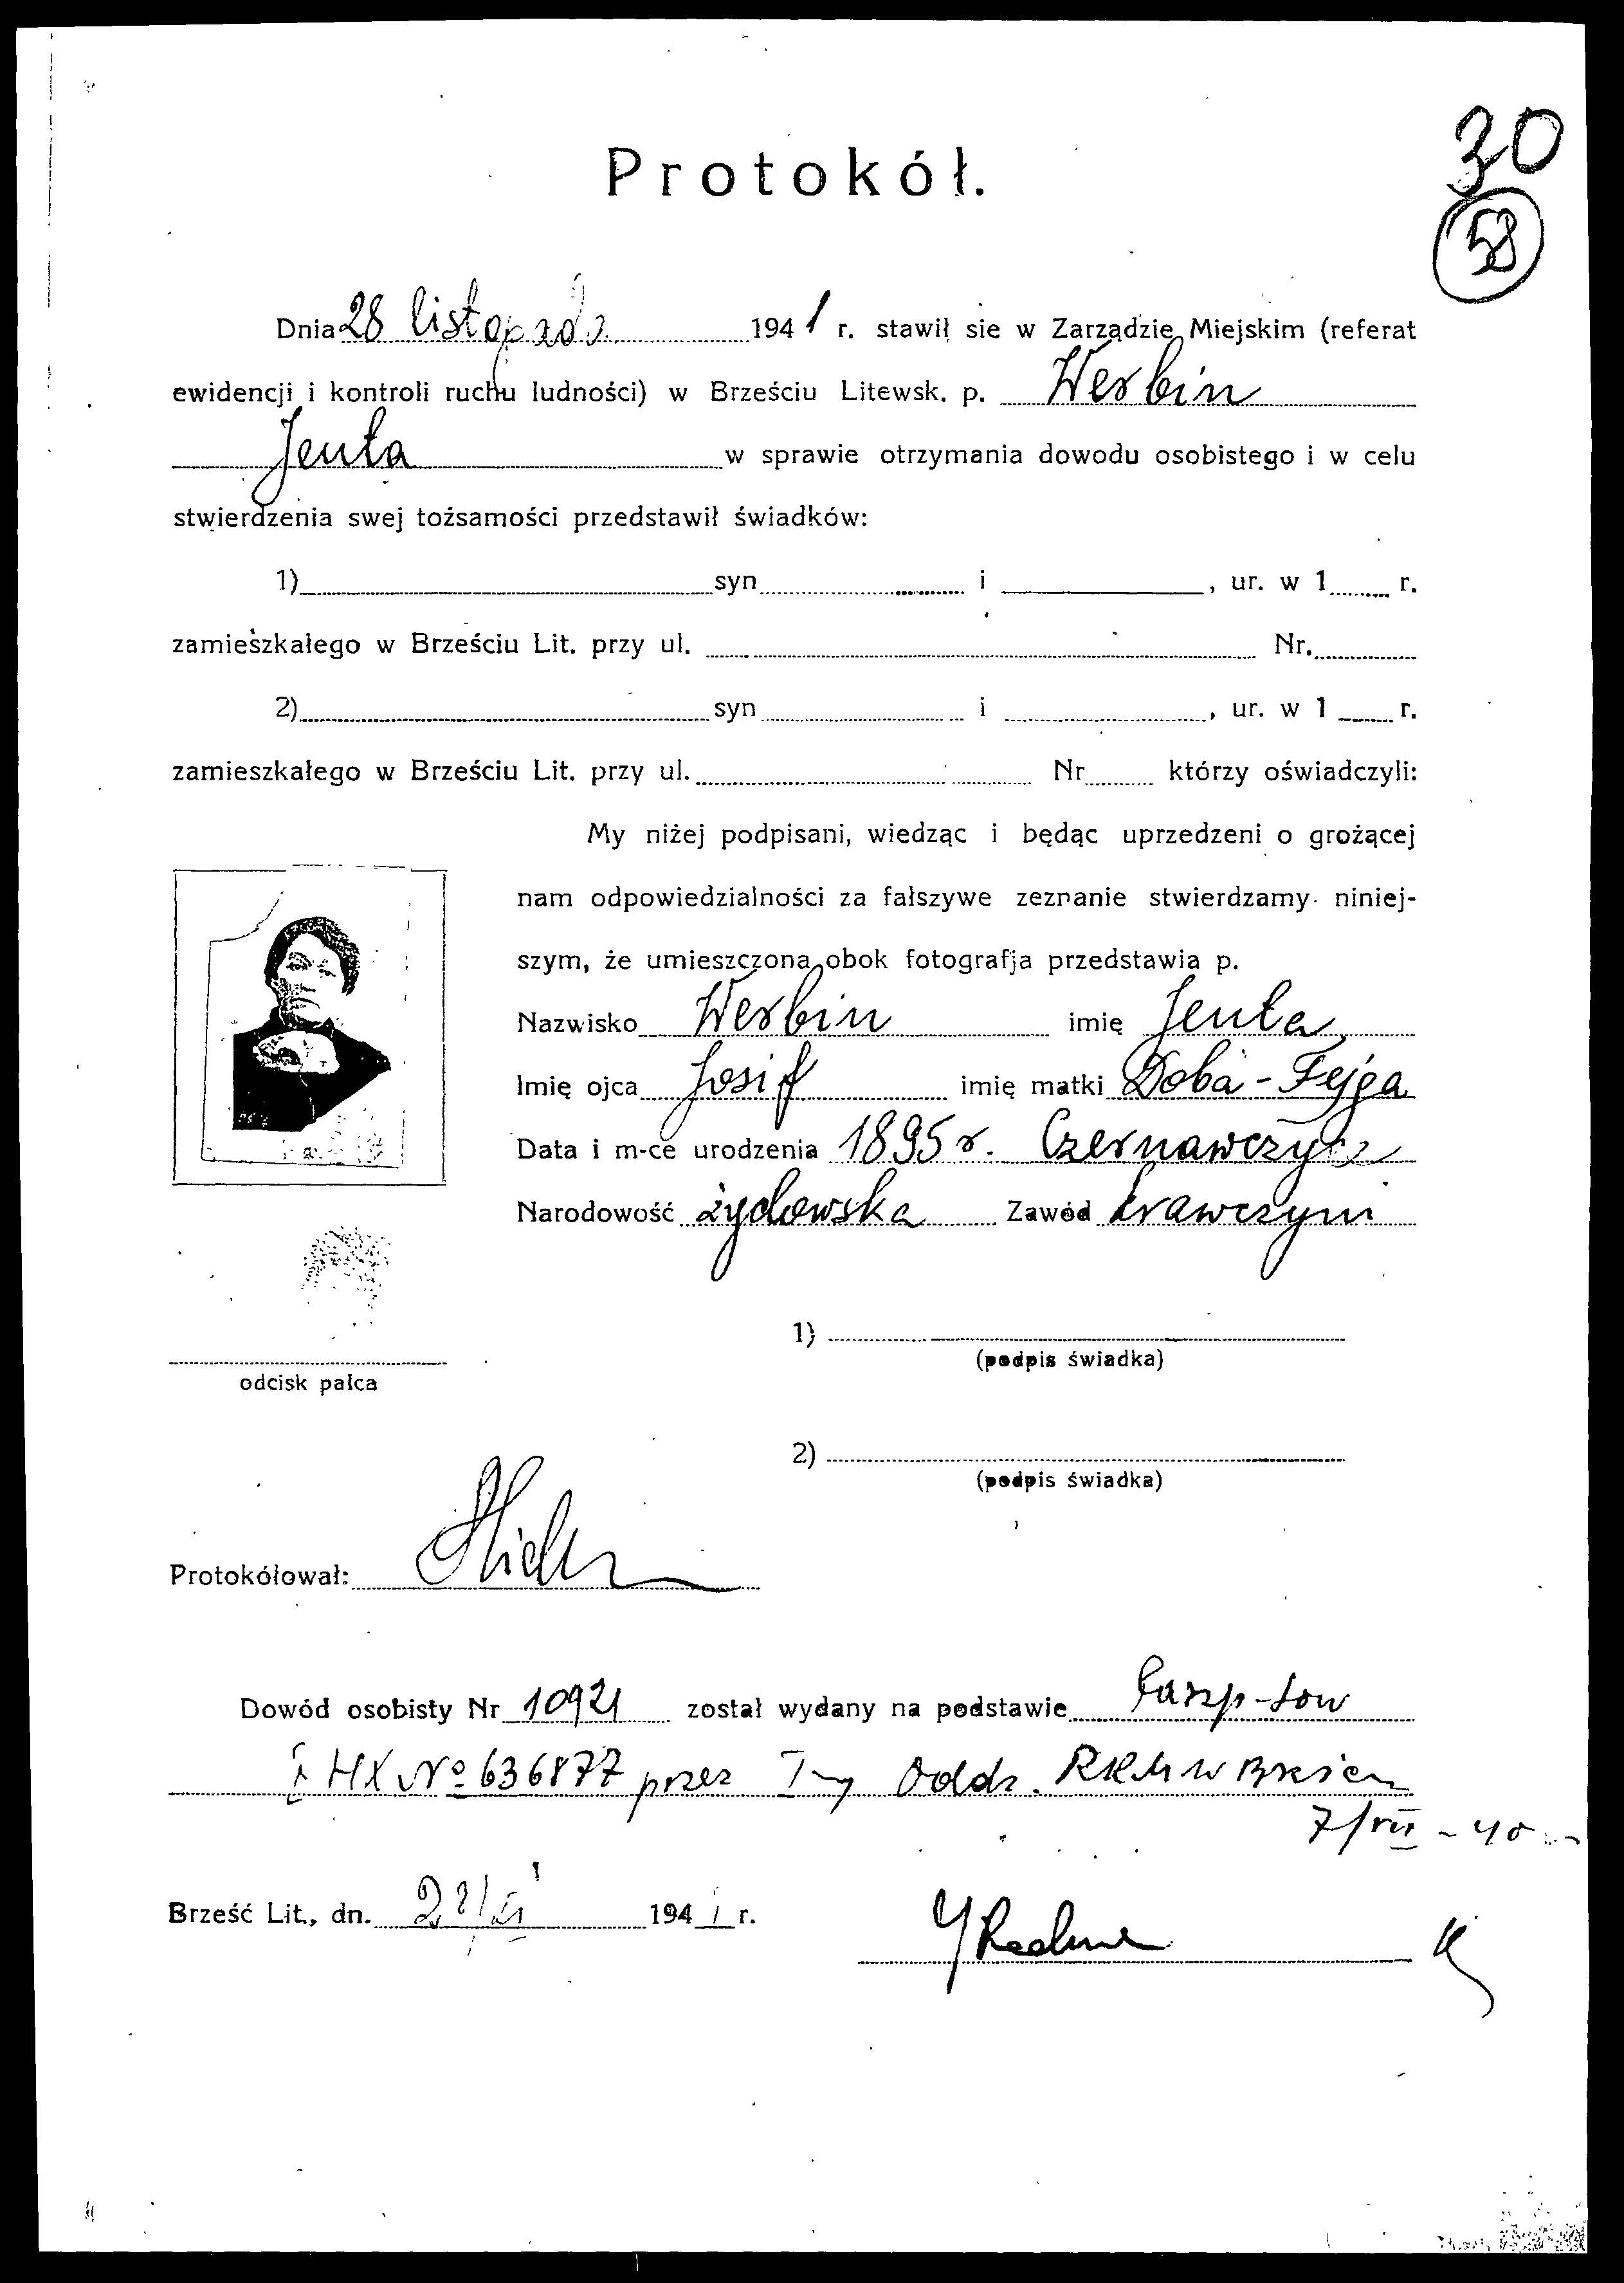 30
58
Protokół.
Dnia 28 listopada 1941 r. stawił sie w Zarządzie Miejskim (referat
ewidencji i kontroli ruchu ludności) w Brześciu Litewsk. p. Werbin
Jenta w sprawie otrzymania dowodu osobistego i w celu
stwierdzenia swej tożsamości przedstawił świadków:
1) syn i , ur. w 1 r.
zamieszkałego w Brześciu Lit. przy ul. Nr.
2) syn i , ur. w 1 r.
zamieszkałego w Brześciu Lit. przy ul. Nr którzy oświadczyli:
My niżej podpisani, wiedząc i będąc uprzedzeni o grożącej
nam odpowiedzialności za fałszywe zeznanie stwierdzamy niniej-
szym, że umieszczona obok fotografja przedstawia p.
Nazwisko Werbin imię Jenta
Imię ojca Josif imię matki Doba-Fejga
Data i m-ce urodzenia 1895 r. Czernawczyce
Narodowość żydowska Zawód krawczyni
1)
(podpis świadka)
odcisk palca
2)
(podpis świadka)
Protokółował:
Dowód osobisty Nr 10921 został wydany na podstawie
HX № 636877 przez I-y Oddz. RKM w Brześciu
7/VII - 40
Brześć Lit., dn. 28/XI 1941 r.